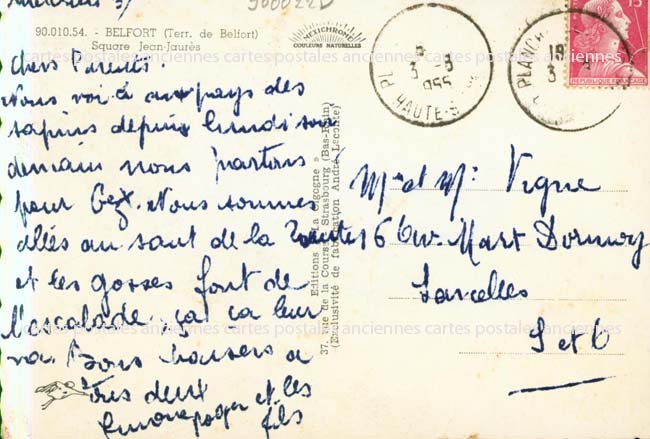 Mercredi 3/
900022D
90.010.54. - BELFORT (Terr. de Belfort)
Square Jean-Jaurès
MEXICHROME
COULEURS NATURELLES
Chers Parents.
Nous voilà aux pays des
sapins depuis lundi soir
demain nous partons
pour Gex. Nous sommes
allés au saut de la
et les gosses font de
l'escalade. ça ça leur
va. Bons baisers a
tous deux
et les
fils
Editions "La Cigogne"
37, rue de la Course, Strasbourg (Bas-Rhin)
(Exclusivité de fabrication André Leconte)
18
3 - 8
955
HAUTE-S
PLANCH
18
3
15
REPUBLIQUE FRANÇAISE
Mme et Mr Vigne
6 Av. Marx Dormoy
Sarcelles
S et O
cartes postales anciennes cartes postales anciennes cartes postales anciennes